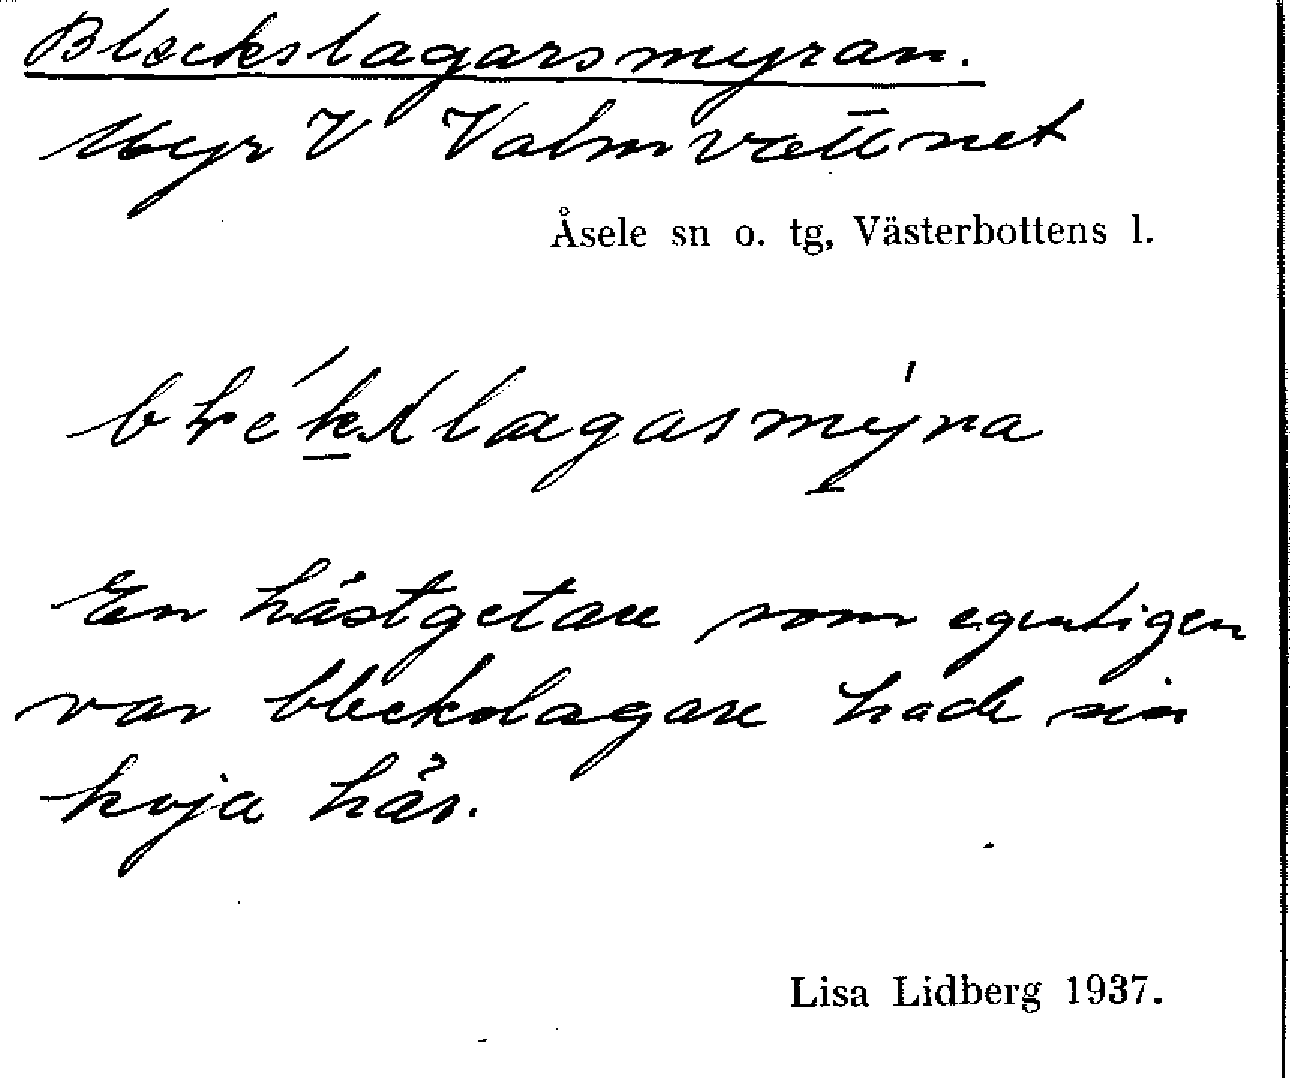 Bleckslagarsmyran.
Myr V Valmvattnet
Åsele sn o. tg, Västerbottens l.
En hästgetare som egentligen
var bleckslagare hade sin
koja här.
Lisa Lidberg 1937.